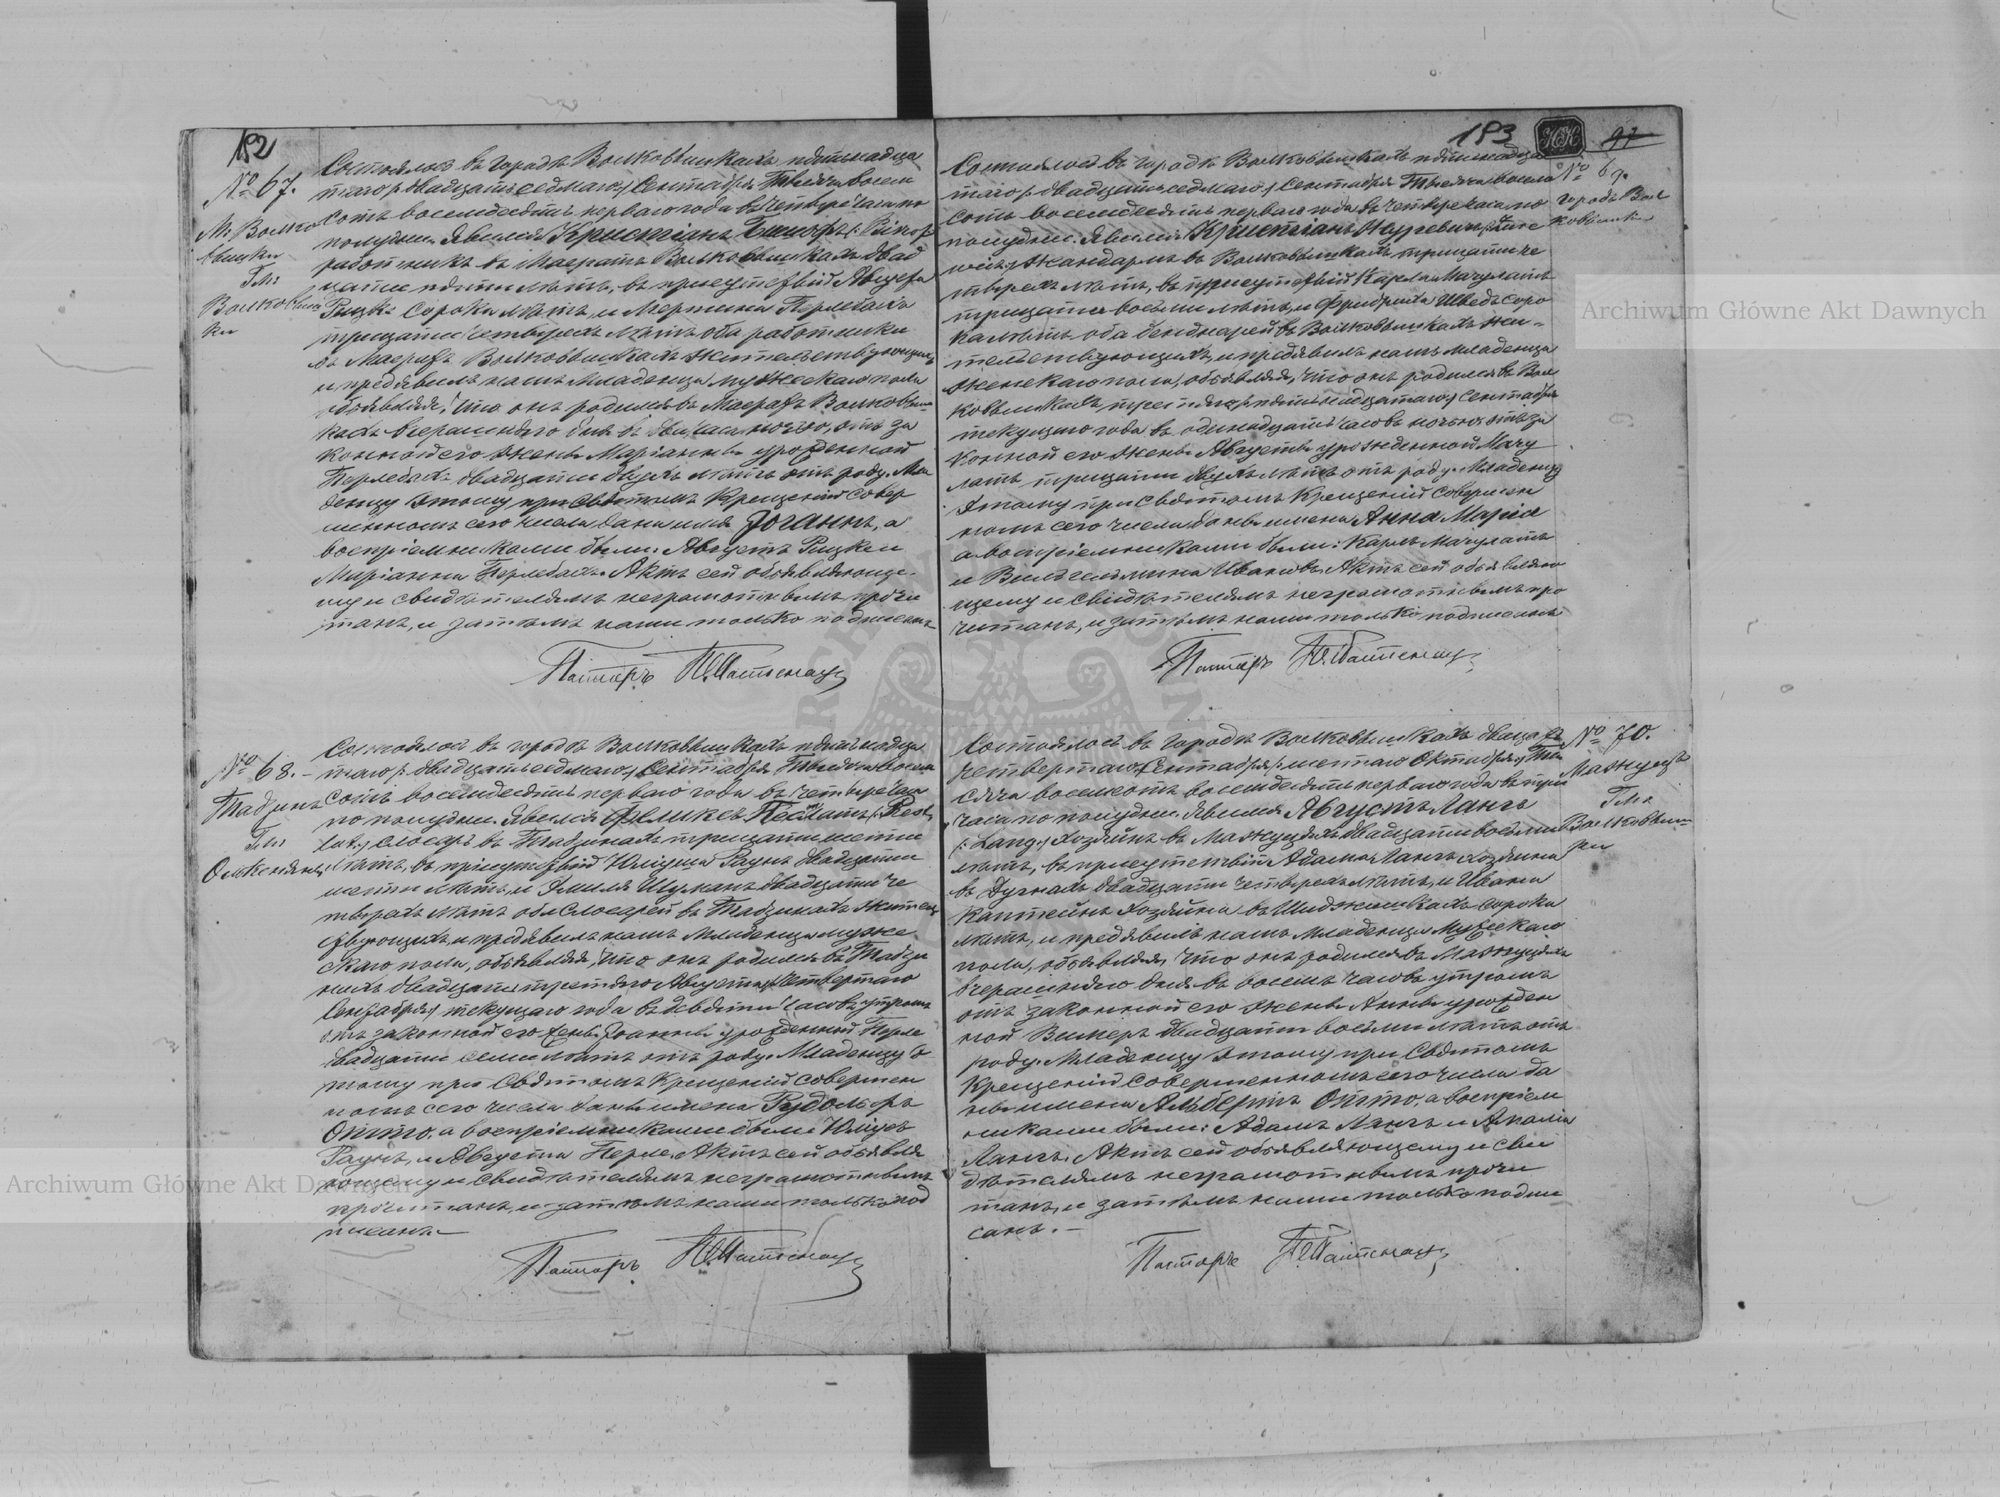 182
№ 67.
М. Волко
вишки
Гм:
Волковиш
ки
Состоялось въ городѣ Волковышкахъ пятьнадца
таго /: двадцать седмаго:/ Сентября Тысяча восем
сотъ восемдесятъ перваго года въ четыре часа по
полудни. Явился Кристіанъ
работникъ въ Маератѣ Волковышкахъ двад
цати пяти лѣтъ, въ присутствіи Августа
Рицке сорока лѣтъ, и Мертина Перлебаха
тридцати четырехъ лѣтъ оба работники
въ Волковышкахъ жительствующихъ,
и предъявилъ намъ младенца мужескаго пола
объявляя, что онъ родился въ Маератѣ Волковыш
кахъ вчерашняго дня въ два часа ночью, отъ за
конной его жены Маріанны урожденной
Перлебахъ двадцати двухъ лѣтъ отъ роду. Мла
денцу этому при Святомъ Крещеніи совер
шенномъ сего числа дано имя Іоганнъ, а
воспріемниками были: Августъ Рицке и
Маріанна Перлебахъ. Актъ сей объявляюще
му и свидѣтелямъ неграмотнымъ прочи
танъ, и затѣмъ нами только подписанъ
Пасторъ
№ 68.
Состоялось въ городѣ Волковышкахъ пятьнадца
таго /: двадцать седмаго:/ Сентября Тысяча восем
сотъ восемдесятъ перваго года въ четыре часа
по полудни. Явился Феликсъ
слесарь въ тридцати шести
лѣтъ, въ присутствіи Юлиуса Раунъ двадцати
шести лѣтъ, и Эмиля Шуманъ двадцати че
тырехъ лѣтъ оба слесарей въ жительс
твующихъ, и предъявилъ намъ младенца муже
скаго пола, объявляя, что онъ родился въ
двадцать третяго Августа /: четвертаго
Сентября:/ текущаго года въ девяти часовъ утромъ
отъ законной его жены Іоанны урожденной Перле
двадцати семи лѣтъ отъ роду. Младенцу э
тому при Святомъ Крещеніи совершен
номъ сего числа даны имена Рудольфъ
Отто, а воспріемниками были: Юлиусъ
Раунъ, и Августа Перле. Актъ сей объявля
ющему и свидѣтелямъ неграмотнымъ
прочитанъ, и затѣмъ нами только под
писанъ.
Пасторъ
183
97
№ 69.
Городъ Вол
ковышки
Состоялось въ городѣ Волковышкахъ пятьнадца
таго /: двадцать седмаго:/ Сентября Тысяча восем
сотъ восемдесятъ перваго года въ четыре часа по
полудни. Явился Кристіанъ
Жандармъ въ Волковышкахъ тридцати че
тырехъ лѣтъ, въ присутствіи Карла Мачулатъ
тридцати восьми лѣтъ, и Фридриха Шведъ соро
ка лѣтъ оба въ Волковышкахъ жи
тельствующихъ, и предъявилъ намъ младенца
женскаго пола, объявляя, что онъ родился въ Вол
ковышкахъ, третяго /: пятьнадцатаго:/ Сентября
текущаго года въ одинадцать часовъ ночью отъ за
конной его жены Августы урожденной Мачу
латъ тридцати двухъ лѣтъ отъ роду. Младенцу
этому при Святомъ Крещеніи совершен
номъ сего числа даны имена Анна Марія
а воспріемниками были: Карлъ Мачулатъ
и Вильгельмина Ивановъ. Актъ сей объявляю
щему и свидѣтелямъ неграмотнымъ про
читанъ, и затѣмъ нами только подписанъ
Пасторъ
№ 70.
Мажуцѣ
Гм:
Волковыш
ки
Состоялось въ городѣ Волковышкахъ двадцать
четвертаго Сентября /: шестаго Октября:/ Ты
сяча восемсотъ восемдесятъ перваго года въ три
часа по полудни. Явился Августъ Лангъ
/: Lang:/ хозяинъ въ Мажуцяхъ двадцати восьми
лѣтъ, въ присутствіи Адама Лангъ хозяина
въ двадцати четырехъ лѣтъ, и Ивана
хозяина въ сорока
лѣтъ, и предъявилъ намъ младенца мужескаго
пола, объявляя, что онъ родился въ Мажуцяхъ
вчерашняго дня въ восемъ часовъ утромъ
отъ законной его жены Анны урожден
ной двадцати восьми лѣтъ отъ
роду. Младенцу этому при Святомъ
Крещеніи совершенномъ сего числа да
ны имена Альбертъ Отто, а воспріем
никами были: Адамъ Лангъ и Амалія
Лангъ. Актъ сей объявляющему и сви
дѣтелямъ неграмотнымъ прочи
танъ, и затѣмъ нами только подпи
санъ. —
Пасторъ
Archiwum Główne Akt Dawnych
Archiwum Główne Akt Dawnych